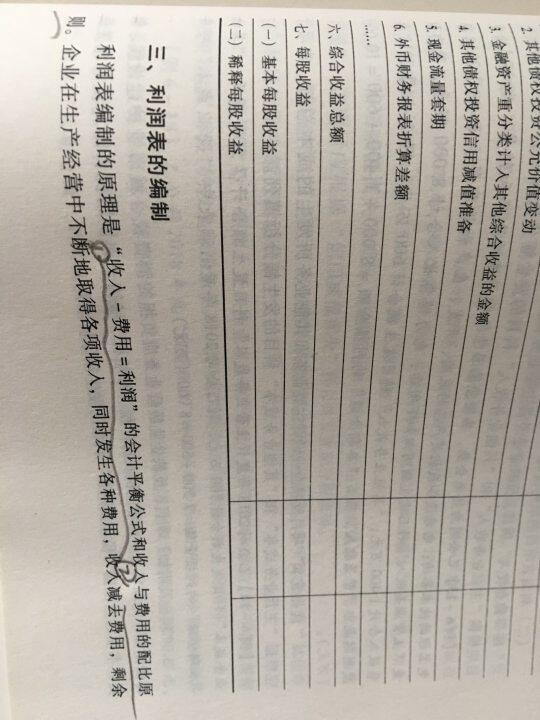 2. 其他债权投资公允价值变动
3. 金融资产重分类计入其他综合收益的金额
4. 其他债权投资信用减值准备
5. 现金流量套期
6. 外币财务报表折算差额
……
六、综合收益总额
七、每股收益
（一）基本每股收益
（二）稀释每股收益
三、利润表的编制
利润表编制的原理是“收入－费用＝利润”的会计平衡公式和收入与费用的配比原
则。企业在生产经营中不断地取得各项收入，同时发生各种费用，收入减去费用，剩余
① ②